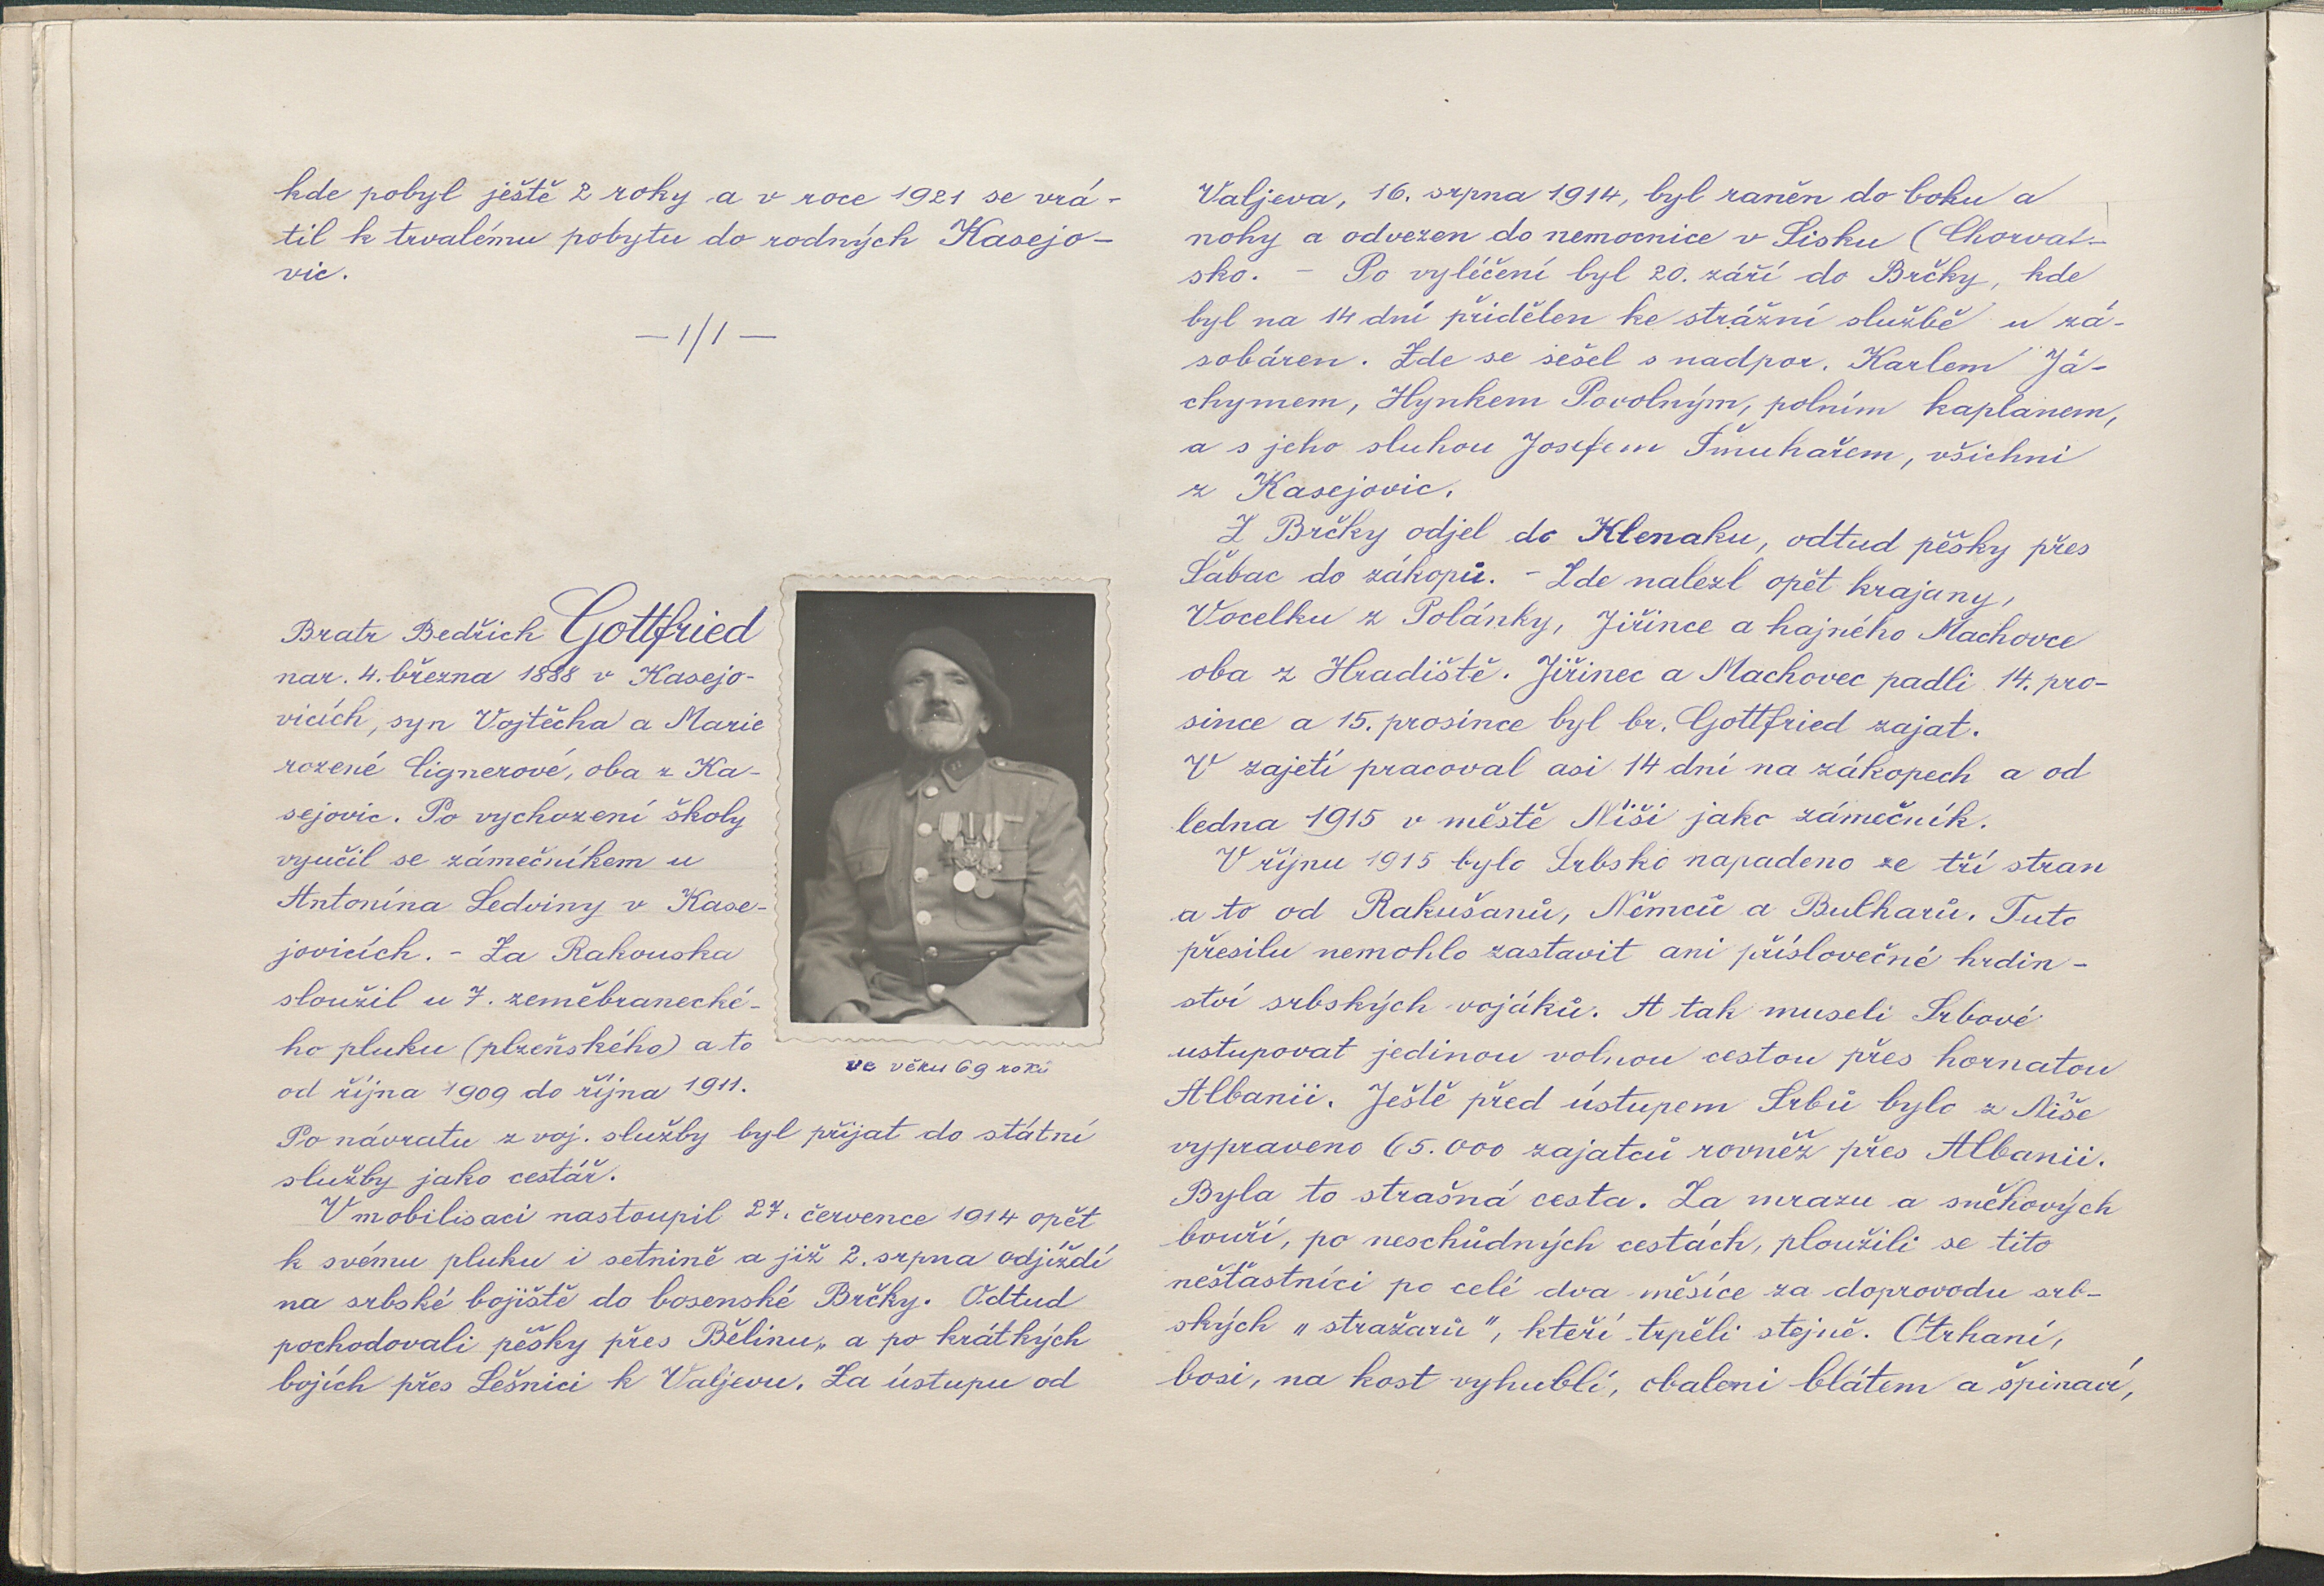 kde pobyl ještě 2 roky a v roce 1921 se vrá-
til k trvalému pobytu do rodných Kasejo-
vic.
— 1/1 —
Bratr Bedřich Gottfried
nar. 4. března 1888 v Kasejo-
vicích, syn Vojtěcha a Marie
rozené Cignerové, oba z Ka-
sejovic. Po vychození školy
vyučil se zámečníkem u
Antonína Ledviny v Kase-
jovicích. - Za Rakouska
sloužil u 7. zeměbranecké-
ho pluku (plzeňského) a to
od října 1909 do října 1911.
ve věku 69 roků
Po návratu z voj. služby byl přijat do státní
služby jako cestář.
V mobilisaci nastoupil 27. července 1914 opět
k svému pluku i setnině a již 2. srpna odjíždí
na srbské bojiště do bosenské Brčky. Odtud
pochodovali pěšky přes Bělinu„ a po krátkých
bojích přes Lešnici k Valjevu. Za ústupu od
Valjeva, 16. srpna 1914, byl raněn do boku a
nohy a odvezen do nemocnice v Sisku (Chorvat-
sko. - Po vyléčení byl 20. září do Brčky, kde
byl na 14 dní přidělen ke strážní službě u zá-
sobáren. Zde se sešel s nadpor. Karlem Já-
chymem, Hynkem Povolným, polním kaplanem,
a s jeho sluhou Josefem Šmuhařem, všichni
z Kasejovic.
Z Brčky odjel do Klenaku, odtud pěšky přes
Šabac do zákopů. - Zde nalezl opět krajany,
Vocelku z Polánky, Jiřince a hajného Machovce
oba z Hradiště. Jiřinec a Machovec padli 14. pro-
since a 15. prosince byl br. Gottfried zajat.
V zajetí pracoval asi 14 dní na zákopech a od
ledna 1915 v městě Niši jako zámečník.
V říjnu 1915 bylo Srbsko napadeno ze tří stran
a to od Rakušanů, Němců a Bulharů. Tuto
přesilu nemohlo zastavit ani příslovečné hrdin-
ství srbských vojáků. A tak museli Srbové
ustupovat jedinou volnou cestou přes hornatou
Albanii. Ještě před ústupem Srbů bylo z Niše
vypraveno 65.000 zajatců rovněž přes Albanii.
Byla to strašná cesta. Za mrazu a sněhových
bouří, po neschůdných cestách, ploužili se tito
nešťastníci po celé dva měsíce za doprovodu srb-
ských „stražarů", kteří trpěli stejně. Otrhaní,
bosi, na kost vyhublí, obaleni blátem a špinaví,